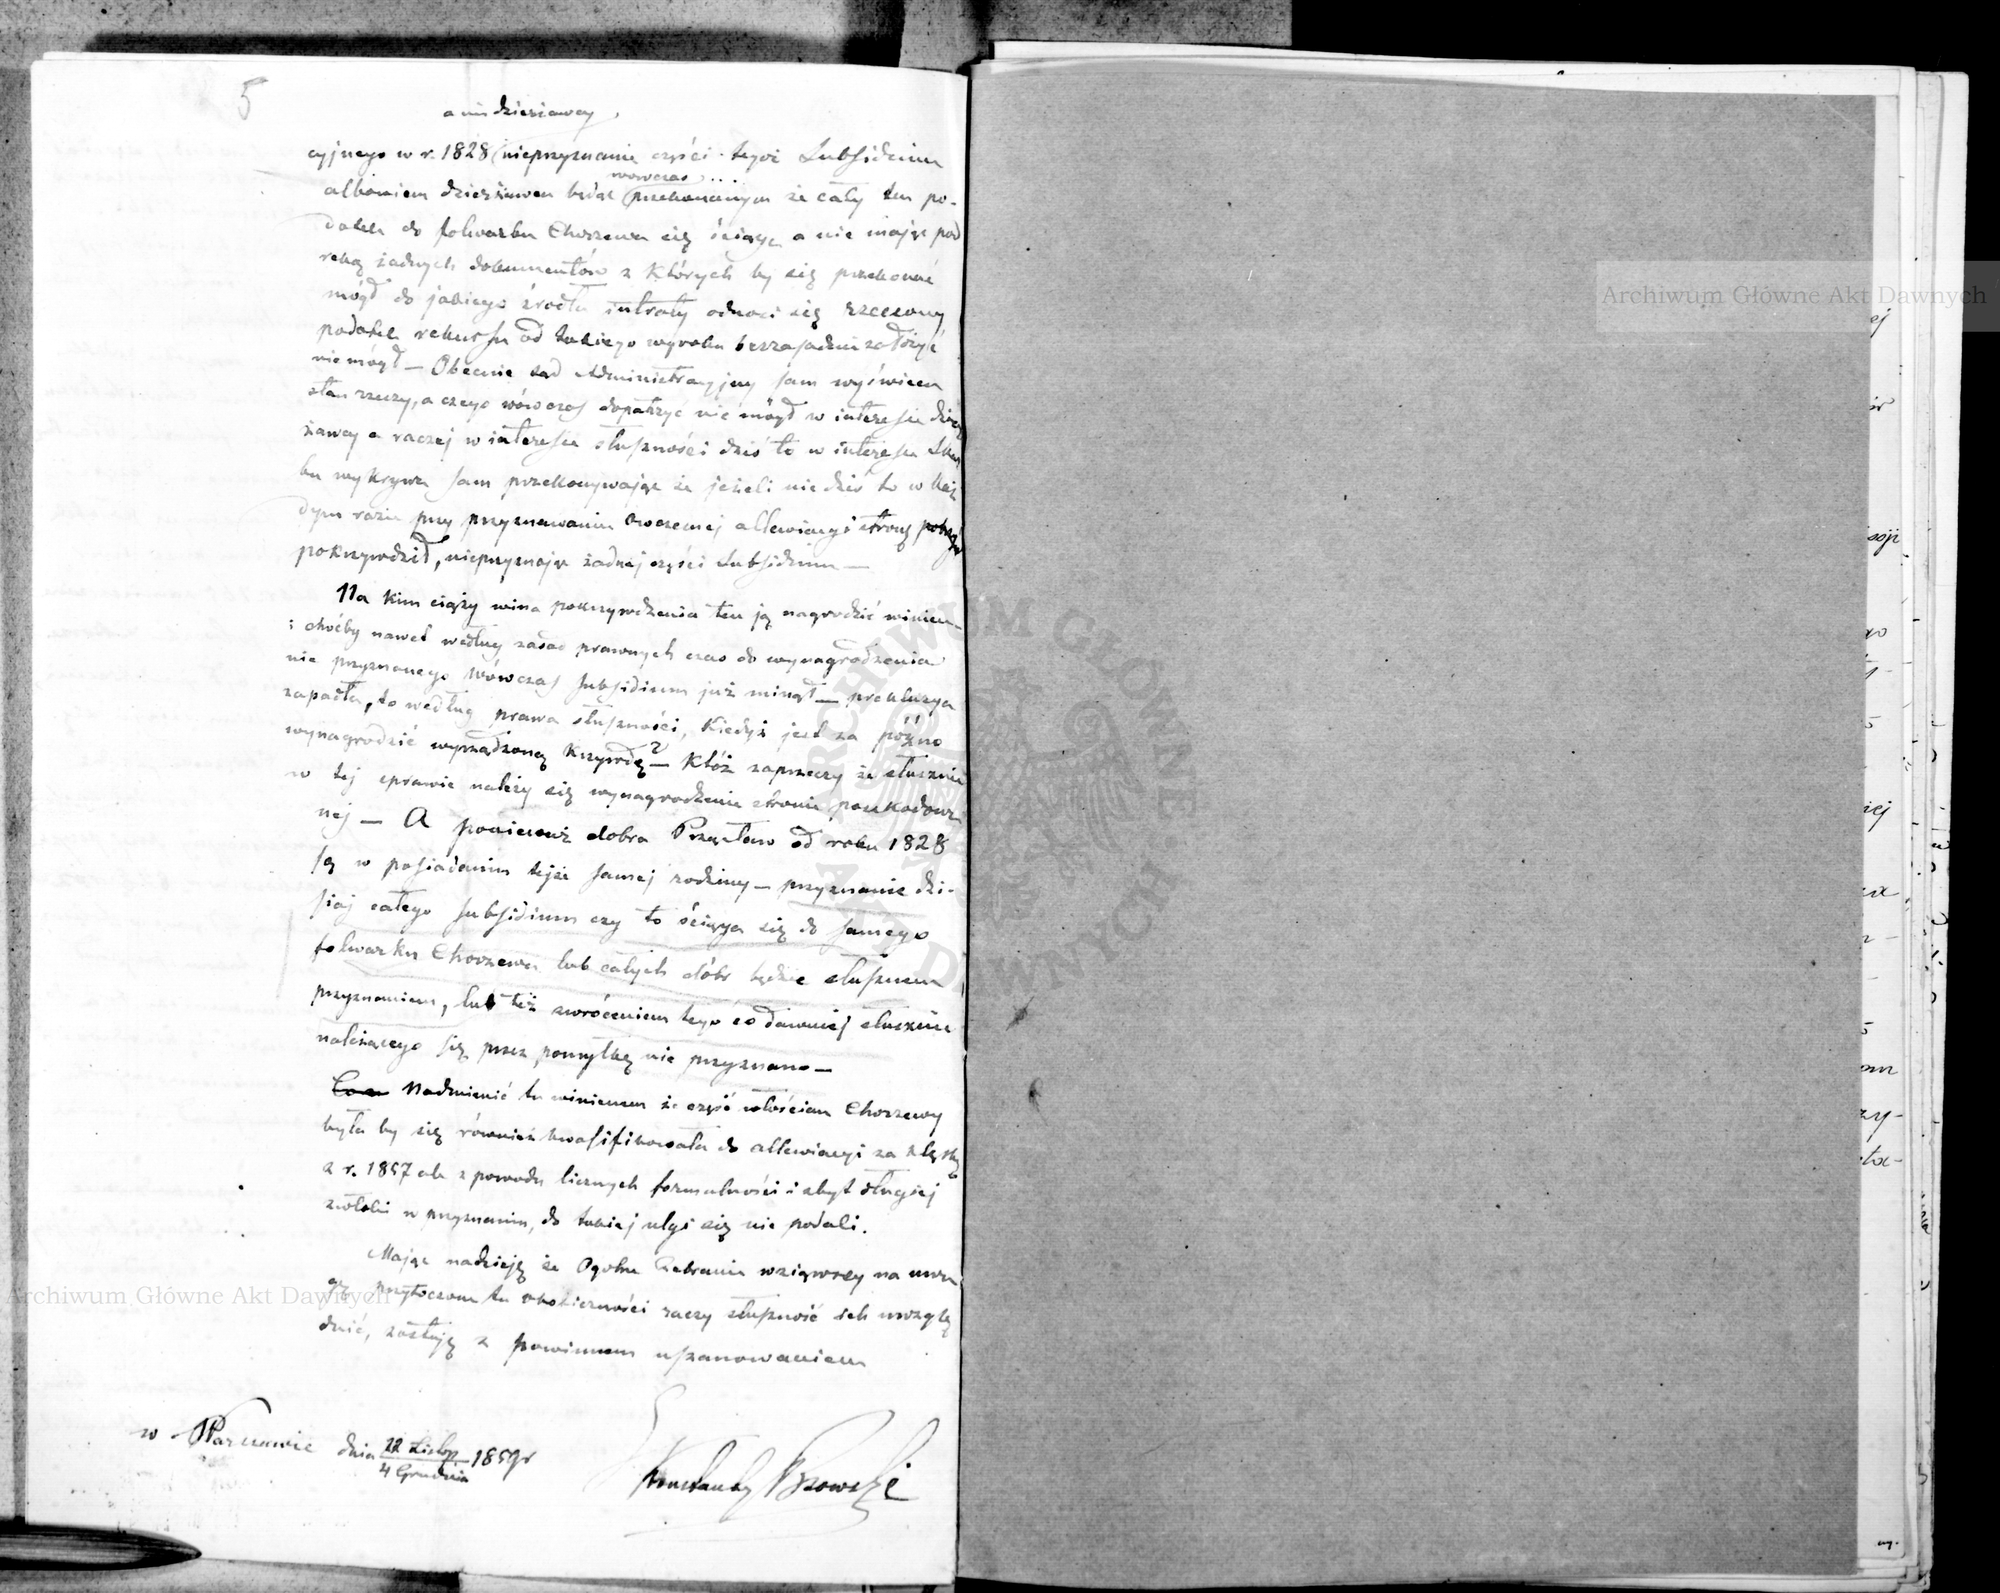 5
a nie dzierżawcy
cyjnego w r. 1828 nieprzyznanie części tegoż Subsidium
wówczas
albowiem dzierżawca będąc przekonanym że cały ten po-
datek do folwarku Chorzewa się ściąga a nie mając pod
ręką żadnych dokumentów z których by się przekonać
mógł do jakiego źródła intraty odnosi się rzeczony
podatek rekursu od takiego wyroku bezzasadnie założyć
nie mógł — Obecnie sąd Administracyjny sam wyświeca
stan rzeczy, a czego wówczas dopatrzyć nie mógł w interesie dzier
żawcy a raczej w interesie słuszności dziś to w interesie Skar
bu wykrywa sam przekonywając że jeżeli nie dziś to w każ
dym razie przy przyznawaniu owczesnej allewiacyi stronę
pokrzywdził, nieprzyznając żadnej części Subsidium —
Na kim ciąży wina pokrzywdzenia ten ją nagrodzić winien —
choćby nawet według zasad prawnych czas do wynagrodzenia
nie przyznanego wówczas subsidium już minął — prekluzya
zapadła, to według prawa słuszności, kiedyż jest za późno
wynagrodzić wyrządzoną krzywdę? — Któż zaprzeczy że słusznie
w tej sprawie należy się wynagrodzenie stronie poszkodowa
nej — A ponieważ dobra Przęsław od roku 1828
są w posiadaniu tejże samej rodziny — przyznanie dzi-
siaj całego subsidium czy to ściąga się do samego
folwarku Chorzewa lub całych dóbr będzie słusznem
przyznaniem, lub też zwróceniem tego co dawniej słusznie
należącego się przez pomyłkę nie przyznano —
Nadmienić tu winienem że część włościan Chorzewy
była by się również kwalifikowała do allewiacyi za klęskę
z r. 1857 ale z powodu licznych formalności i zbyt długiej
zwłoki w przyznaniu, do takiej ulgi się nie podali.
Mając nadzieję że Ogólne Zebranie wziąwszy na uwa
gę przytoczone tu okoliczności raczy słuszność ich uwzglę
dnić, zostaję z powinnem uszanowaniem
w Warszawie dnia 22 Listop / 4 Grudnia 1859 r
Konstanty
Archiwum Główne Akt Dawnych
Archiwum Główne Akt Dawnych
ARCHIWUM GŁÓWNE AKT DAWNYCH